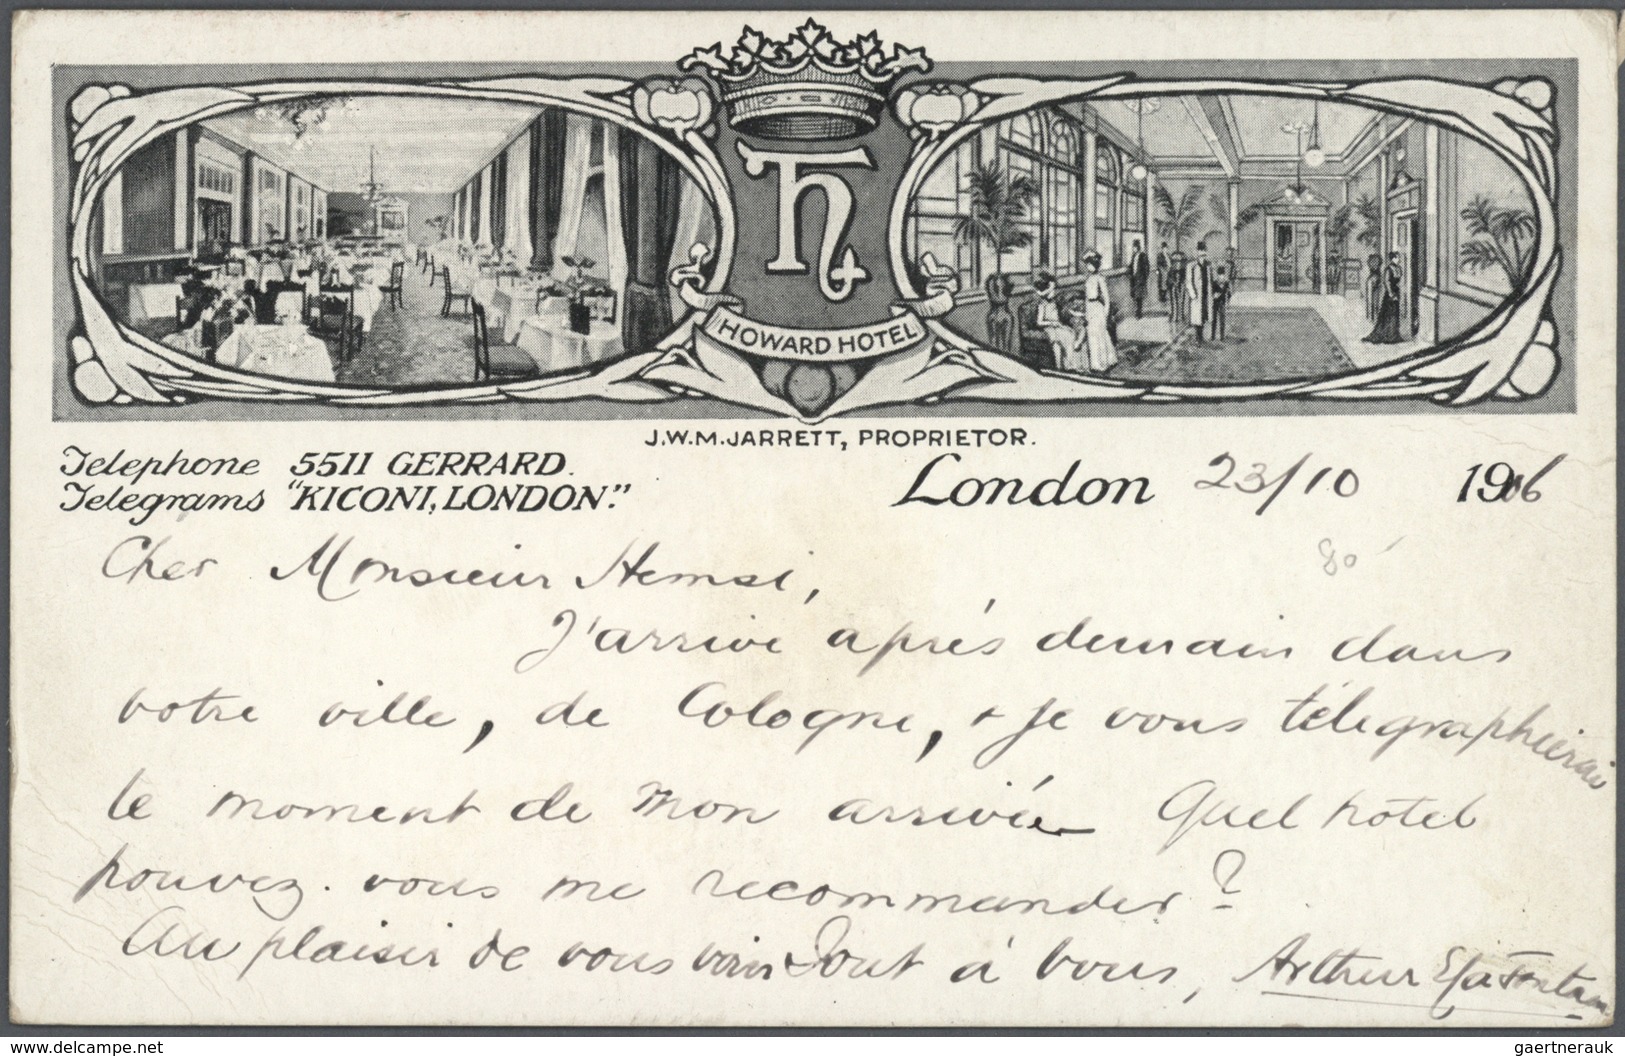 HOWARD HOTEL
J.W.M. JARRETT, PROPRIETOR.
Telephone 5511 GERRARD.
Telegrams "KICONI, LONDON."
London 23/10 1906
80
Cher Monsieur Hemsi,
J'arrive après demain dans
votre ville, de Cologne, + je vous télégraphierai
le moment de mon arrivée Quel hotel
pouvez-vous me recommander?
Au plaisir de vous voir Tout à vous, Arthur
gaertnerauk
the-saleroom.com